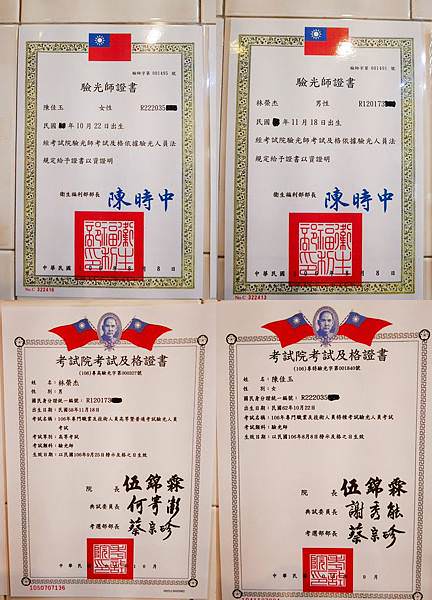 驗師字第 001495 號
驗光師證書
陳佳玉 女性 R222035
民國 年10月22日出生
經考試院驗光師考試及格依據驗光人員法
規定給予證書以資證明
衛生福利部部長 陳時中
中華民國 年 8月 8日
No.C 322416
驗師字第 001401 號
驗光師證書
林榮杰 男性 R120173
民國 年11月18日出生
經考試院驗光師考試及格依據驗光人員法
規定給予證書以資證明
衛生福利部部長 陳時中
中華民國 8日
No.C 322413
考試院考試及格證書
(106)專高驗光字第000327號
姓 名:林榮杰
性 別:男
國民身分證統一編號:R120173
出生日期:民國58年11月18日
考試名稱:106年專門職業及技術人員高等暨普通考試驗光人員
考試
考試等別:高等考試
考試類科:驗光師
生效日期:以民國106年9月25日榜示及格之日生效
院長 伍錦霖
典試委員長 何寄澎
考選部部長 蔡宗珍
中華民國 10月
1050707136
考試院考試及格證書
(106)專特驗光字第001840號
姓 名:陳佳玉
性 別:女
國民身分證統一編號:R222035
出生日期:民國62年10月22日
考試名稱:106年專門職業及技術人員特種考試驗光人員考試
考試類科:驗光師
生效日期:以民國106年8月8日榜示及格之日生效
院長 伍錦霖
典試委員長 謝秀能
考選部部長 蔡宗珍
中華民國 日